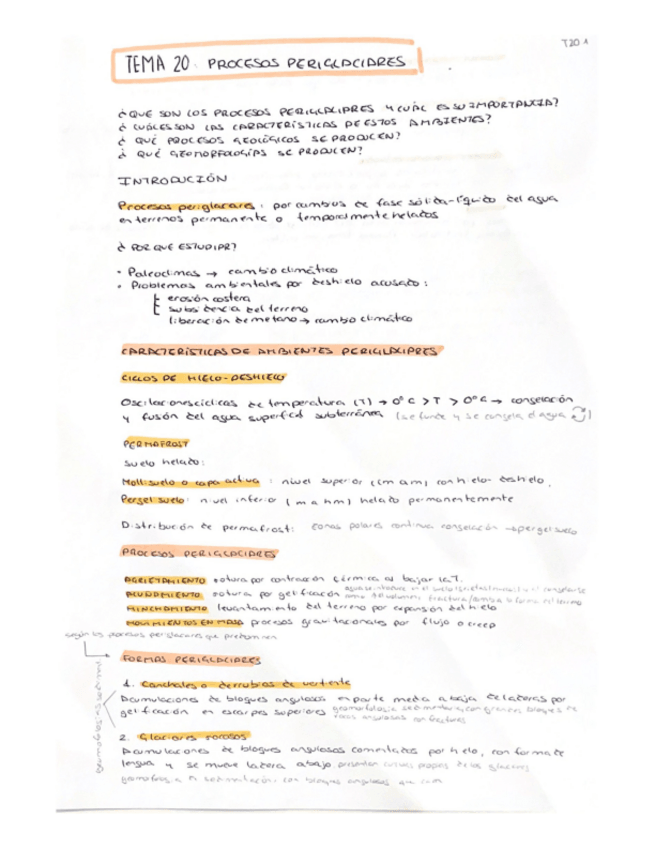 T20 1
TEMA 20 PROCESOS PERIGLACIARES
¿QUE SON LOS PROCESOS PERIGLACIARES Y CUÁL ES SU IMPORTANCIA?
¿CUÁLES SON LAS CARACTERÍSTICAS DE ESTOS AMBIENTES?
¿QUÉ PROCESOS GEOLÓGICOS SE PRODUCEN?
¿QUÉ GEOMORFOLOGÍAS SE PRODUCEN?
INTRODUCIÓN
Procesos periglaciares: por cambios de fase sólida-líquido del agua
en terrenos permanente o temporalmente helados
¿POR QUE ESTUDIAR?
· Paleoclimas → cambio climático
· Problemas ambientales por deshielo acusado:
erosión costera
subsidencia del terreno
liberación de metano → cambio climático
CARACTERÍSTICAS DE AMBIENTES PERIGLACIARES
CICLOS DE HIELO-DESHIELO
Oscilaciones cíclicas de temperatura (T) → 0°C > T > 0°C → congelación
y fusión del agua superficial subterránea (se funde y se congela el agua)
PERMAFROST
Suelo helado:
Mollisuelo o capa activa: nivel superior (cm a m) con hielo-deshielo.
Pergelisuelo: nivel inferior (m a hm) helado permanentemente
Distribución de permafrost: zonas polares continua congelación → pergelisuelo
PROCESOS PERIGLACIARES
AGRIETAMIENTO rotura por contracción térmica al bajar la T.
rotura por gelificación
HINCHAMIENTO levantamiento del terreno por expansión del hielo
MOVIMIENTOS EN MASA procesos gravitacionales por flujo o creep
según los procesos periglaciares que predominen
FORMAS PERIGLACIARES
1. Canchales o derrubios de vertiente
Acumulaciones de bloques angulosos en parte media a baja de laderas por
gelificación en escarpes superiores geomorfología sedimentaria, con grandes bloques de
rocas angulosas sin fracturas
2. Glaciares rocosos
Acumulaciones de bloques angulosos cementados por hielo, con forma de
lengua y se mueve ladera abajo presentan propios de los glaciares
sedimentación con bloques angulosos que